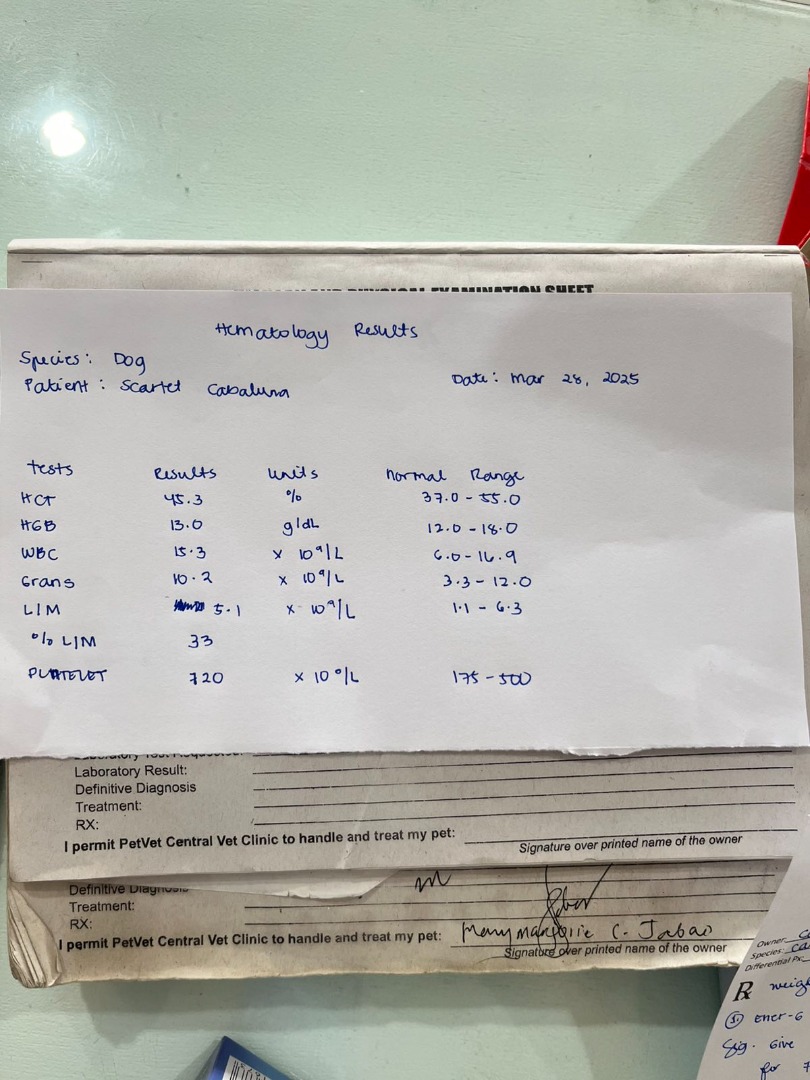 PHYSICAL EXAMINATION SHEET
Hematology Results
Species: Dog
Patient: Scarlet Cabaluna
Date: Mar 28, 2025
Tests Results Units Normal Range
HCT 45.3 % 37.0 - 55.0
HGB 13.0 g/dL 12.0 - 18.0
WBC 15.3 x 10⁹/L 6.0 - 16.9
Grans 10.2 x 10⁹/L 3.3 - 12.0
L/M 5.1 x 10⁹/L 1.1 - 6.3
% L/M 33
PLATELET 720 x 10⁹/L 175 - 500
Laboratory Result:
Definitive Diagnosis
Treatment:
RX:
I permit PetVet Central Vet Clinic to handle and treat my pet:
Signature over printed name of the owner
Definitive Diagnosis
Treatment:
RX:
I permit PetVet Central Vet Clinic to handle and treat my pet: C. Jabao
Signature over printed name of the owner
Owner
Species:
Differential
Rx
① Ener-G
Sig. Give
for